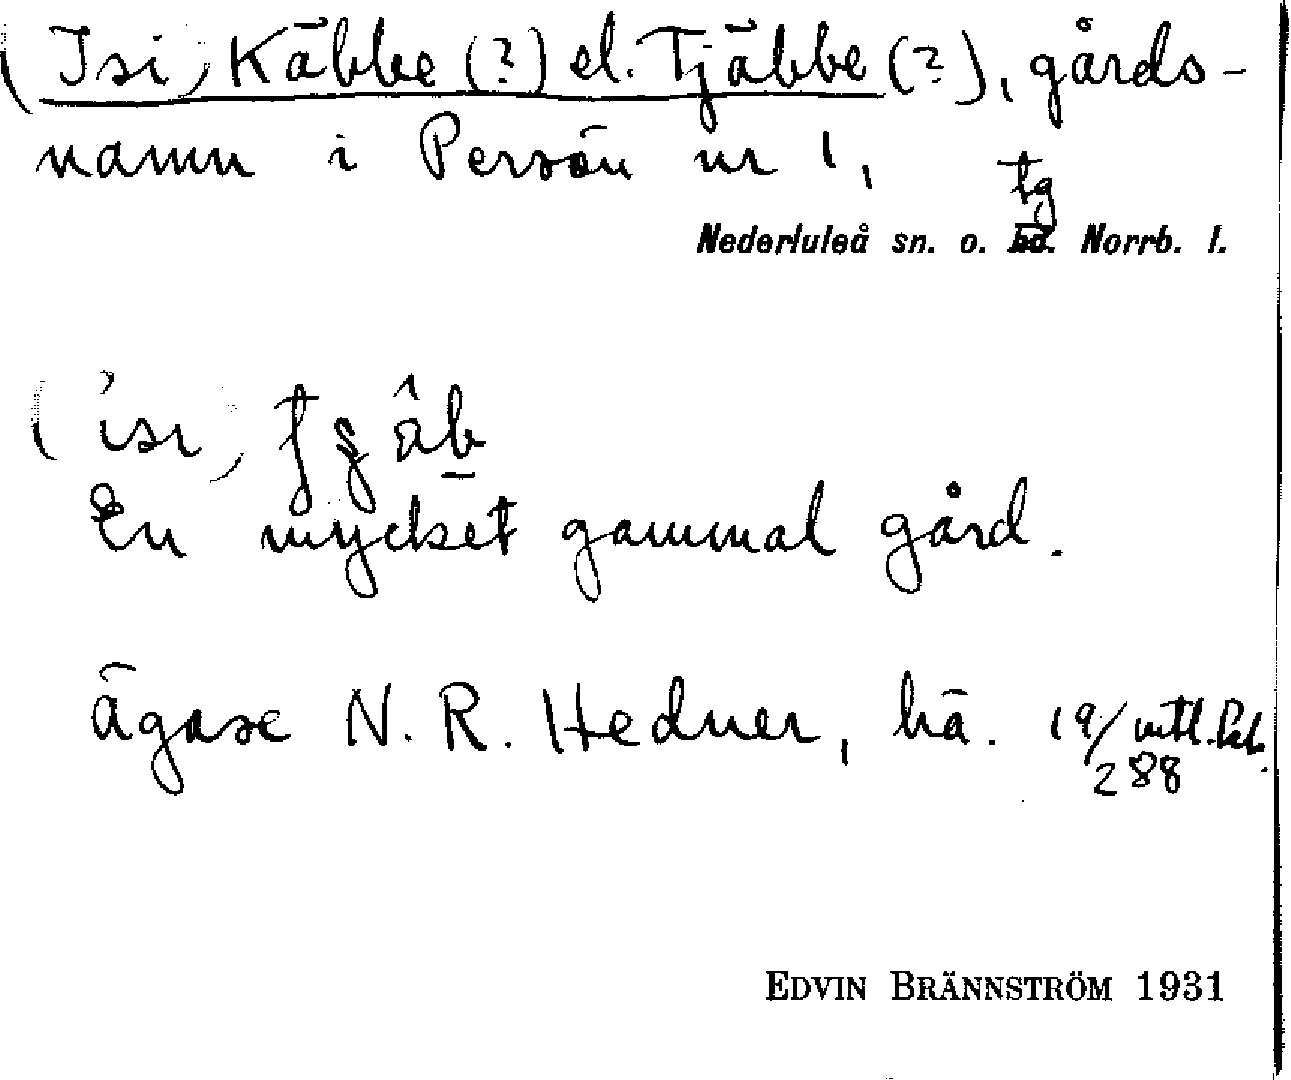 (Isi) Käbbe (?) el. Tjäbbe (?), gårds-
namn i Persön nr 1,
tg
Nederluleå sn. o. hd. Norrb. l.
En mycket gammal gård.
ägare N. R. Hedner, hä. 19/
288
EDVIN BRÄNNSTRÖM 1931